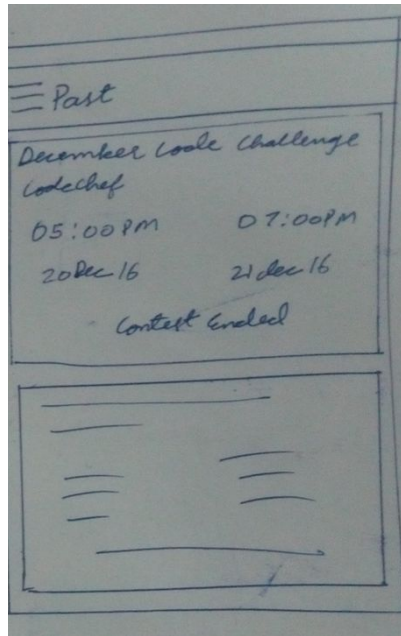 Past
December Code Challenge
Codechef
05:00PM 07:00PM
20Dec 16 21 dec 16
Contest Ended